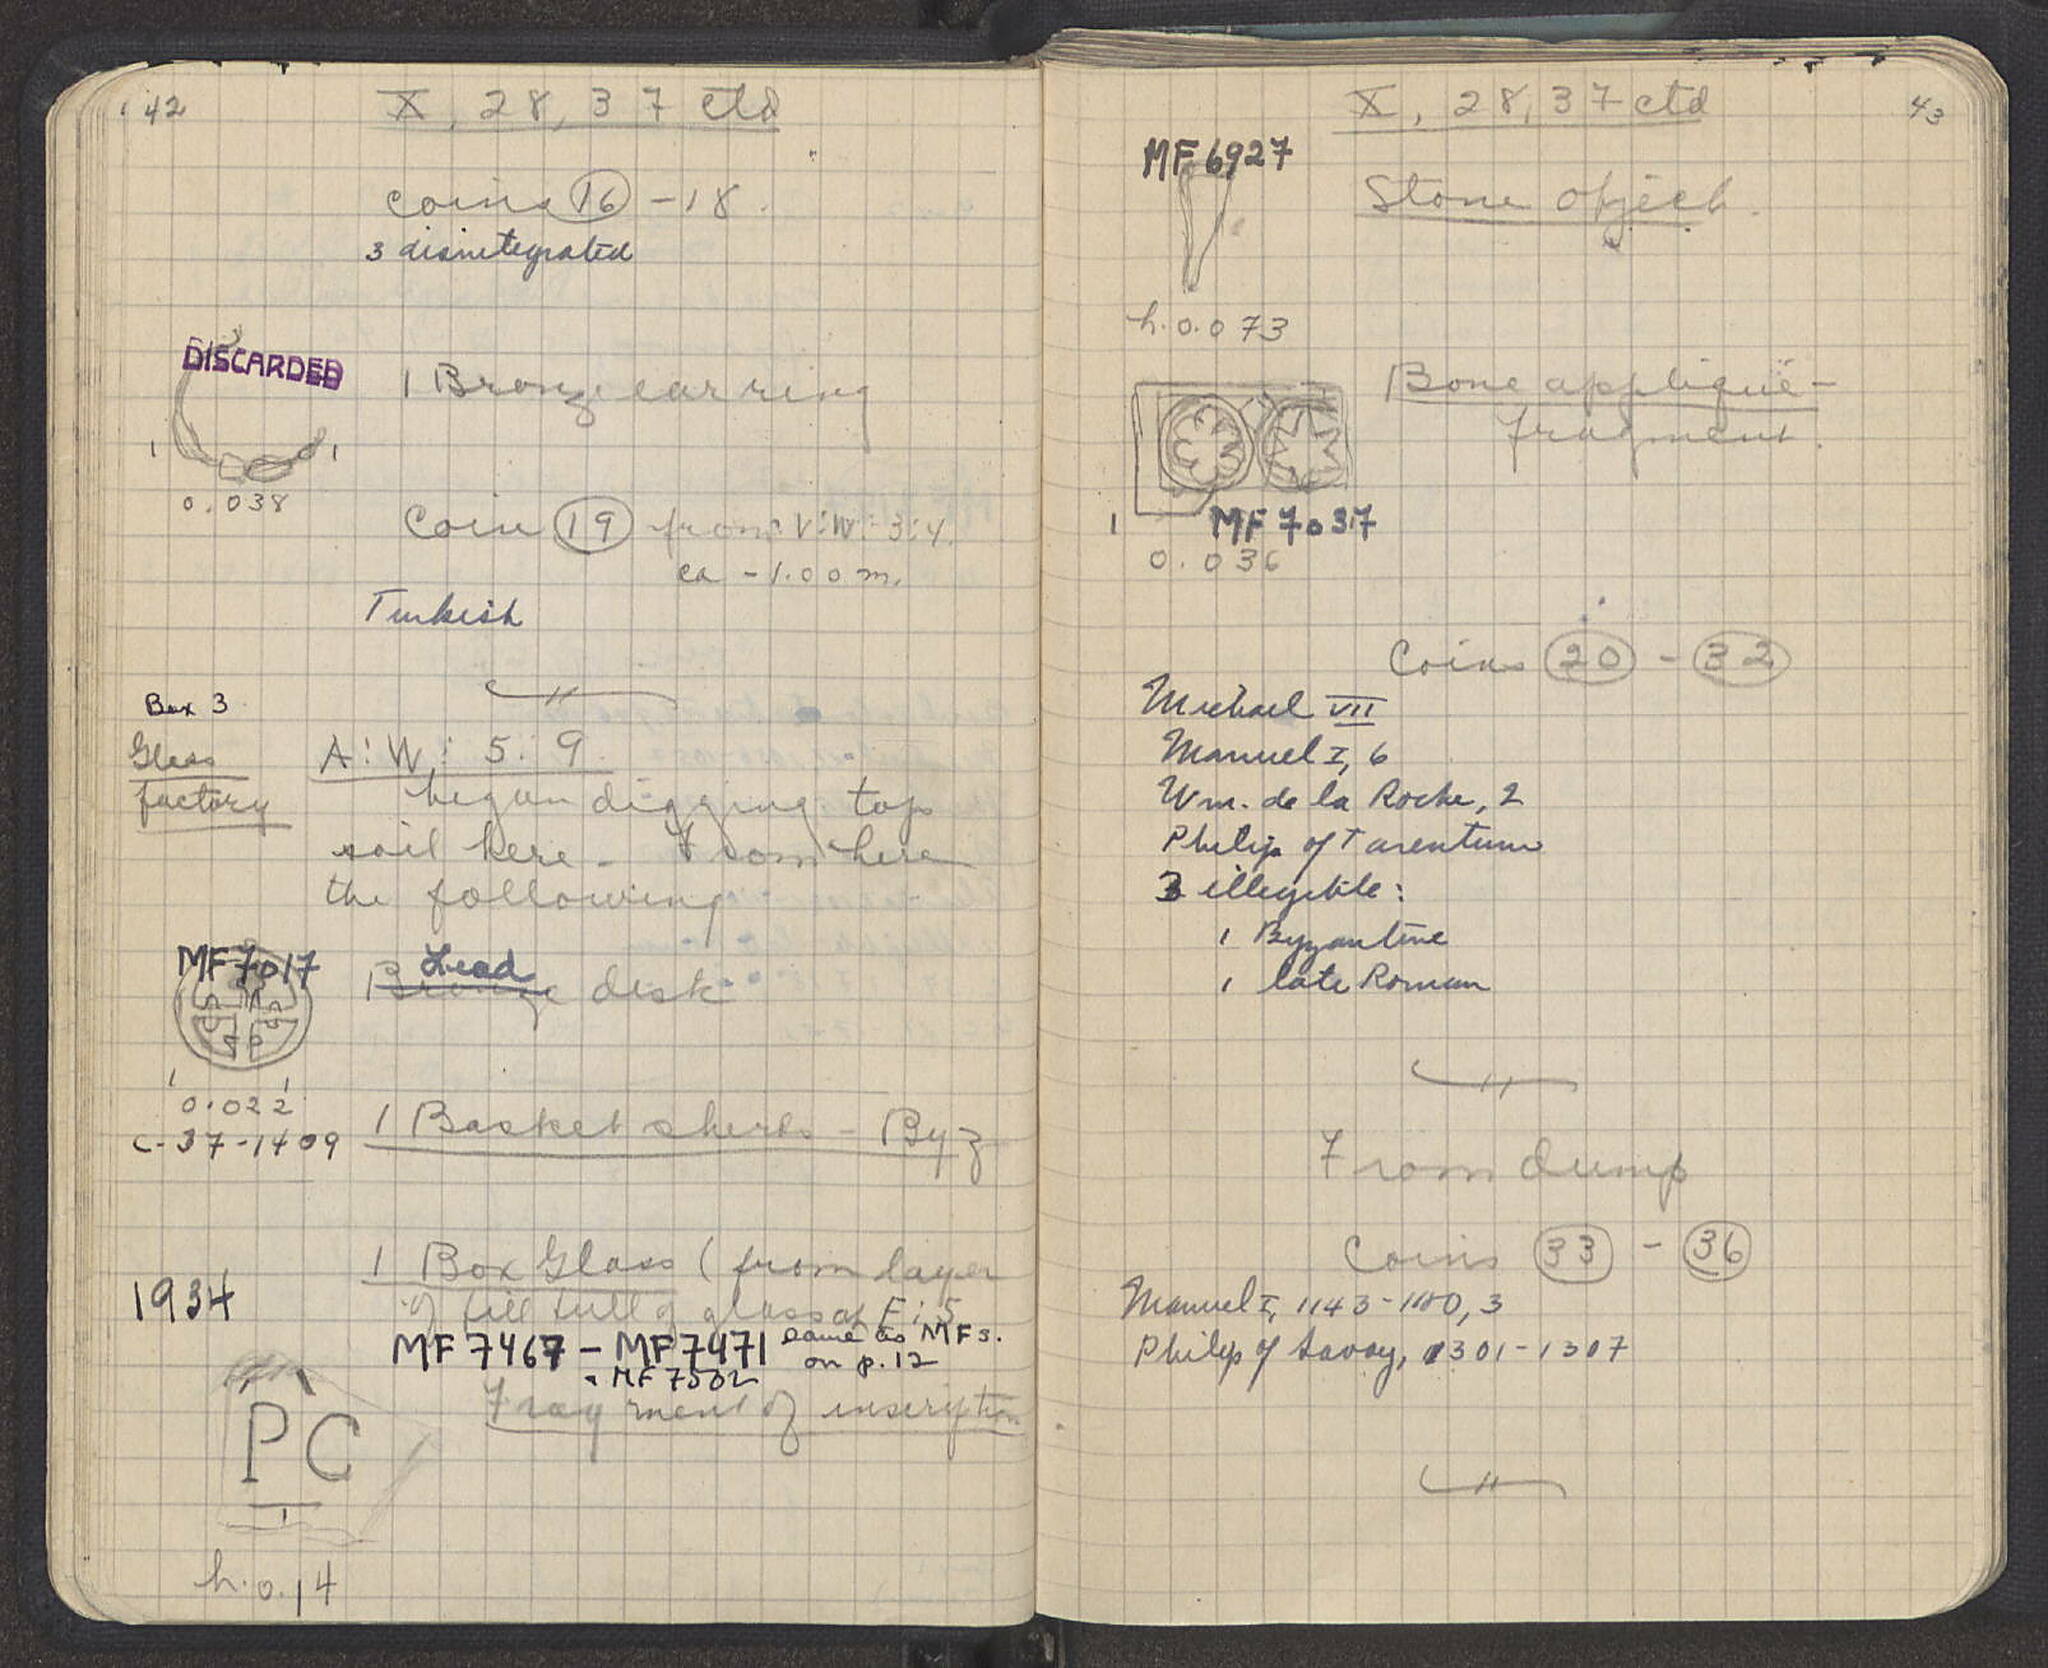 42
X, 28, 37 ctd
coins 16 - 18.
3 disintegrated
DISCARDED
1 Bronze earring
0.038
Coin 19 from V:W:3:4.
ca - 1.00 m.
Turkish
Box 3
Glass
factory
A:W: 5:9.
began digging top
soil here - From here
the following
MF 7017
Lead
Bronze disk
0.022
C-37-1409
1 Basket sherds - Byz
1 Box Glass (from layer
of fill full of glass at F:5
1934
MF 7467 - MF 7471 same as MFs.
on p. 12
MF 7502
Fragment of inscription
PC
h. 0.14
43
X, 28, 37 ctd
MF 6927
Stone object.
h. 0.073
Bone appliqué -
fragment.
MF 7037
0.036
Coins 20 - 32
Michael VII
Manuel I, 6
Wm. de la Roche, 2
Philip of Tarentum
3 illegible:
1 Byzantine
1 late Roman
From dump
Coins 33 - 36
Manuel I, 1143-1180, 3
Philip of Savoy, 1301-1307